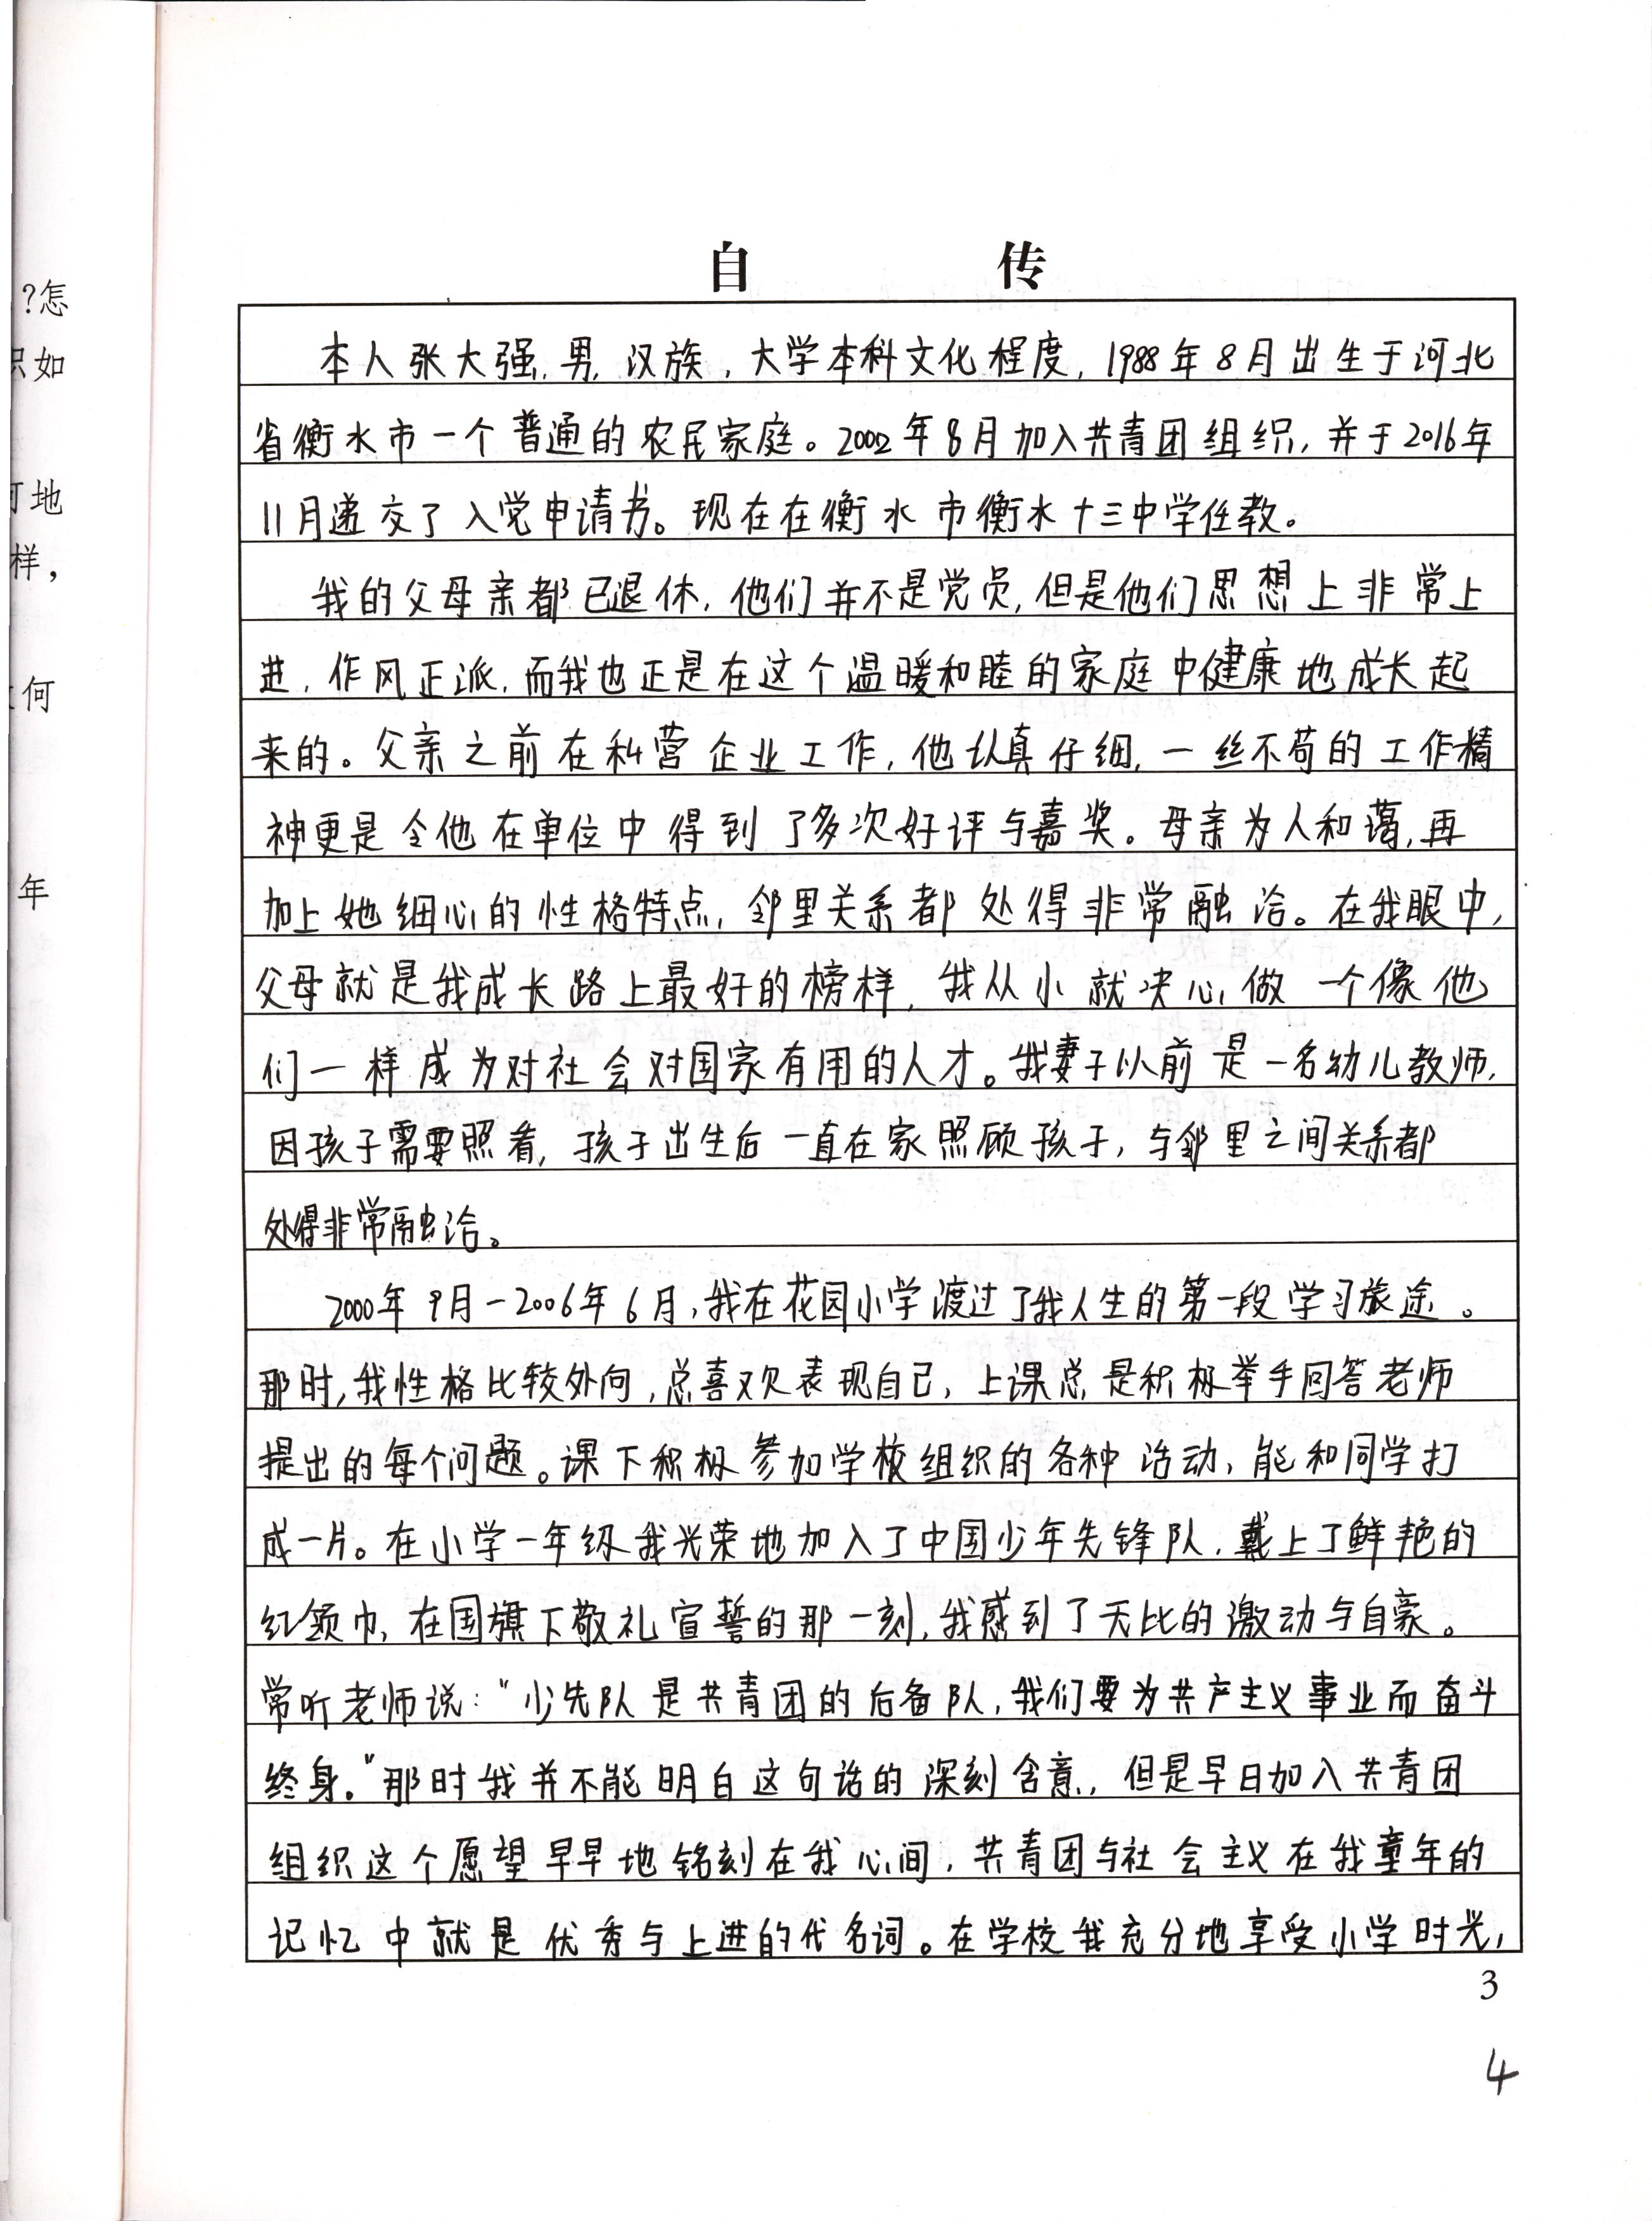 自 传
本人张大强，男，汉族，大学本科文化程度，1988年8月出生于河北
省衡水市一个普通的农民家庭。2002年8月加入共青团组织，并于2016年
11月递交了入党申请书。现在在衡水市衡水十三中学任教。
我的父母亲都已退休，他们并不是党员，但是他们思想上非常上
进，作风正派，而我也正是在这个温暖和睦的家庭中健康地成长起
来的。父亲之前在私营企业工作，他认真仔细，一丝不苟的工作精
神更是令他在单位中得到了多次好评与嘉奖。母亲为人和蔼，再
加上她细心的性格特点，邻里关系都处得非常融洽。在我眼中，
父母就是我成长路上最好的榜样，我从小就决心做一个像他
们一样成为对社会对国家有用的人才。我妻子以前是一名幼儿教师，
因孩子需要照看，孩子出生后一直在家照顾孩子，与邻里之间关系都
处得非常融洽。
2000年9月-2006年6月，我在花园小学渡过了我人生的第一段学习旅途。
那时，我性格比较外向，总喜欢表现自己，上课总是积极举手回答老师
提出的每个问题。课下积极参加学校组织的各种活动，能和同学打
成一片。在小学一年级我光荣地加入了中国少年先锋队，戴上了鲜艳的
红领巾，在国旗下敬礼宣誓的那一刻，我感到了无比的激动与自豪。
常听老师说："少先队是共青团的后备队，我们要为共产主义事业而奋斗
终身。"那时我并不能明白这句话的深刻含意，但是早日加入共青团
组织这个愿望早早地铭刻在我心间，共青团与社会主义在我童年的
记忆中就是优秀与上进的代名词。在学校我充分地享受小学时光，
3
4
?怎
识如
何地
样，
何
年